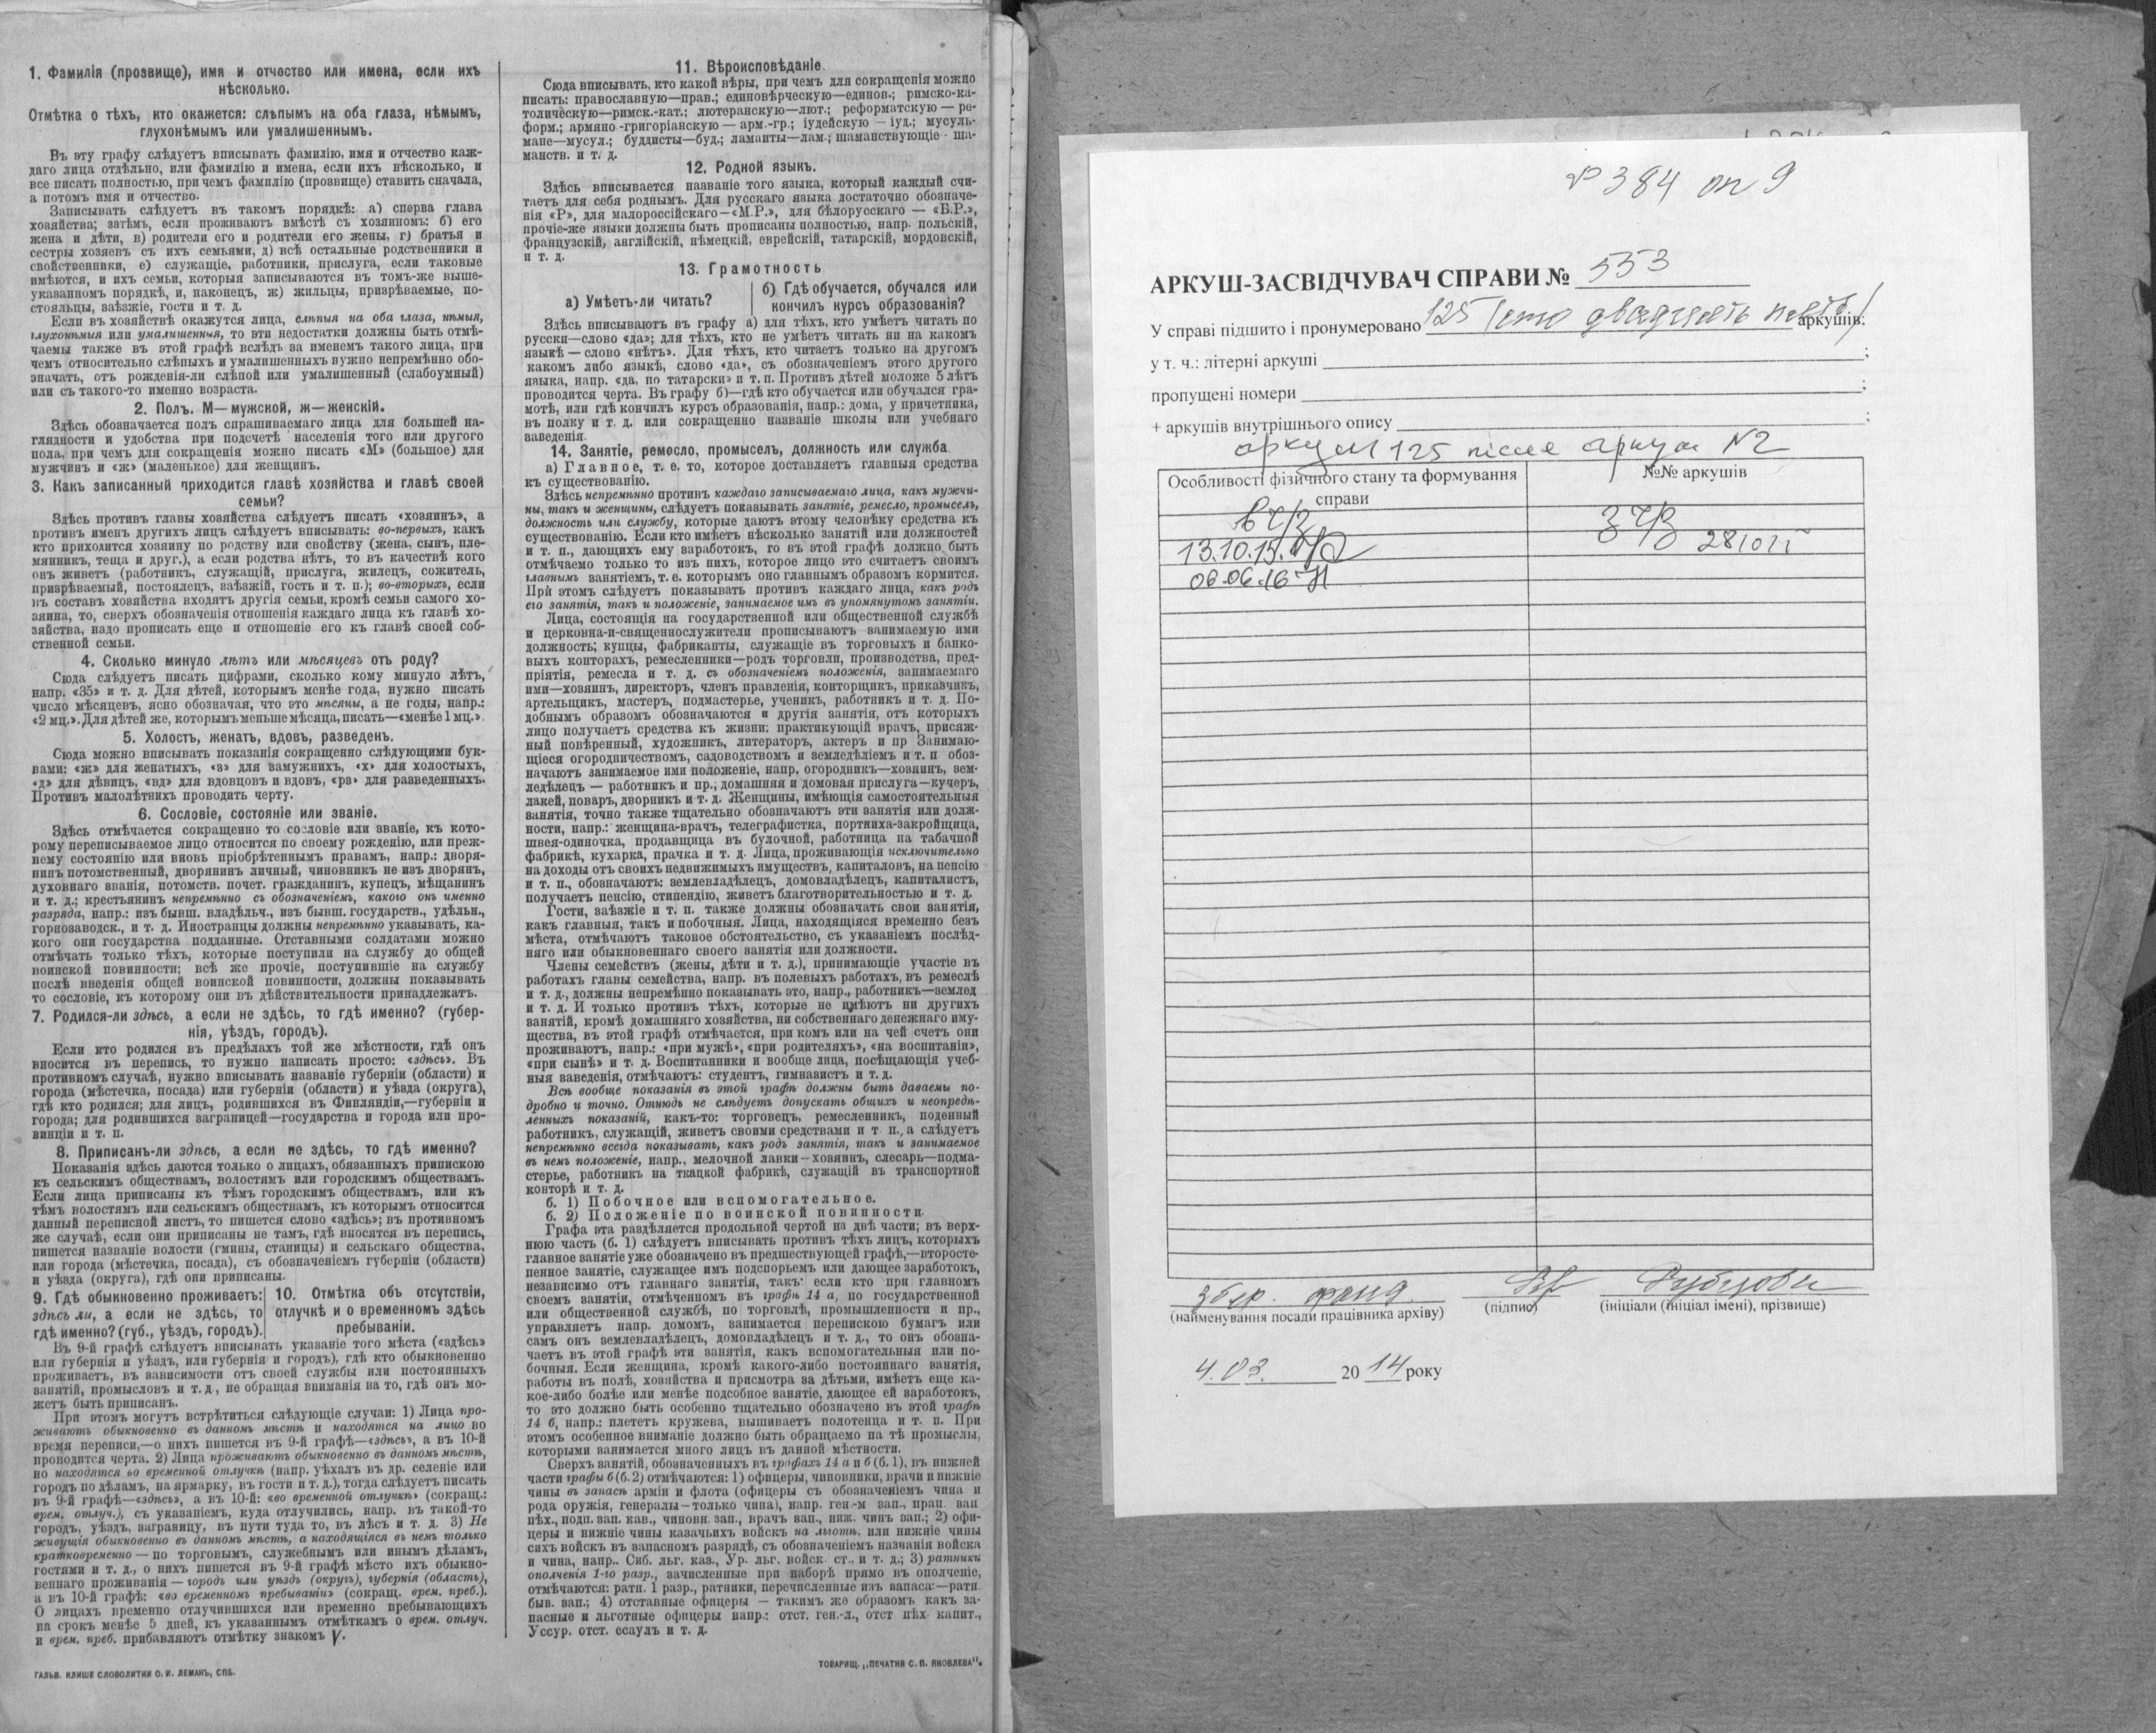 1. Фамилія (прозвище), имя и отчество или имена, если ихъ
нѣсколько.
Отмѣтка о тѣхъ, кто окажется: слѣпымъ на оба глаза, нѣмымъ,
глухонѣмымъ или умалишеннымъ.
Въ эту графу слѣдуетъ вписывать фамилію, имя и отчество каж-
даго лица отдѣльно, или фамилію и имена, если ихъ нѣсколько, и
все писать полностью, при чемъ фамилію (прозвище) ставить сначала,
а потомъ имя и отчество.
Записывать слѣдуетъ въ такомъ порядкѣ: а) сперва глава
хозяйства; затѣмъ, если проживаютъ вмѣстѣ съ хозяиномъ: б) его
жена и дѣти, в) родители его и родители его жены, г) братья и
сестры хозяевъ съ ихъ семьями, д) всѣ остальные родственники и
свойственники, е) служащіе, работники, прислуга, если таковые
имѣются, и ихъ семьи, которыя записываются въ томъ-же выше-
указанномъ порядкѣ, и, наконецъ, ж) жильцы, призрѣваемые, по-
стояльцы, заѣзжіе, гости и т. д.
Если въ хозяйствѣ окажутся лица, слѣпыя на оба глаза, нѣмыя,
глухонѣмыя или умалишенныя, то эти недостатки должны быть отмѣ-
чаемы также въ этой графѣ вслѣдъ за именемъ такого лица, при
чемъ относительно слѣпыхъ и умалишенныхъ нужно непремѣнно обо-
значать, отъ рожденія-ли слѣпой или умалишенный (слабоумный)
или съ такого-то именно возраста.
2. Полъ. М—мужской, ж—женскій.
Здѣсь обозначается полъ спрашиваемаго лица для большей на-
глядности и удобства при подсчетѣ населенія того или другого
пола, при чемъ для сокращенія можно писать «М» (большое) для
мужчинъ и «ж» (маленькое) для женщинъ.
3. Какъ записанный приходится главѣ хозяйства и главѣ своей
семьи?
Здѣсь противъ главы хозяйства слѣдуетъ писать «хозяинъ», а
противъ именъ другихъ лицъ слѣдуетъ вписывать: во-первыхъ, какъ
кто приходится хозяину по родству или свойству (жена, сынъ, пле-
мянникъ, теща и друг.), а если родства нѣтъ, то въ качествѣ кого
онъ живетъ (работникъ, служащій, прислуга, жилецъ, сожитель,
призрѣваемый, постоялецъ, заѣзжій, гость и т. п.); во-вторыхъ, если
въ составъ хозяйства входятъ другія семьи, кромѣ семьи самого хо-
зяина, то, сверхъ обозначенія отношенія каждаго лица къ главѣ хо-
зяйства, надо прописать еще и отношеніе его къ главѣ своей соб-
ственной семьи.
4. Сколько минуло лѣтъ или мѣсяцевъ отъ роду?
Сюда слѣдуетъ писать цифрами, сколько кому минуло лѣтъ,
напр. «35» и т. д. Для дѣтей, которымъ менѣе года, нужно писать
число мѣсяцевъ, ясно обозначая, что это мѣсяцы, а не годы, напр.:
«2 мц.». Для дѣтей же, которымъ меньше мѣсяца, писать—«менѣе 1 мц.».
5. Холостъ, женатъ, вдовъ, разведенъ.
Сюда можно вписывать показанія сокращенно слѣдующими бук-
вами: «ж» для женатыхъ, «з» для замужнихъ, «х» для холостыхъ,
«д» для дѣвицъ, «вд» для вдовцовъ и вдовъ, «рз» для разведенныхъ.
Противъ малолѣтнихъ проводить черту.
6. Сословіе, состояніе или званіе.
Здѣсь отмѣчается сокращенно то сословіе или званіе, къ кото-
рому переписываемое лицо относится по своему рожденію, или преж-
нему состоянію или вновь пріобрѣтеннымъ правамъ, напр.: дворя-
нинъ потомственный, дворянинъ личный, чиновникъ не изъ дворянъ,
духовнаго званія, потомств. почет. гражданинъ, купецъ, мѣщанинъ
и т. д.; крестьянинъ непремѣнно съ обозначеніемъ, какого онъ именно
разряда, напр.: изъ бывш. владѣльч., изъ бывш. государств., удѣльн.,
горнозаводск., и т. д. Иностранцы должны непремѣнно указывать, ка-
кого они государства подданные. Отставными солдатами можно
отмѣчать только тѣхъ, которые поступили на службу до общей
воинской повинности; всѣ же прочіе, поступившіе на службу
послѣ введенія общей воинской повинности, должны показывать
то сословіе, къ которому они въ дѣйствительности принадлежатъ.
7. Родился-ли здѣсь, а если не здѣсь, то гдѣ именно? (губер-
нія, уѣздъ, городъ).
Если кто родился въ предѣлахъ той же мѣстности, гдѣ онъ
вносится въ перепись, то нужно написать просто: «здѣсь». Въ
противномъ случаѣ, нужно вписывать названіе губерніи (области) и
города (мѣстечка, посада) или губерніи (области) и уѣзда (округа),
гдѣ кто родился; для лицъ, родившихся въ Финляндіи,—губерніи и
города; для родившихся заграницей—государства и города или про-
винціи и т. п.
8. Приписанъ-ли здѣсь, а если не здѣсь, то гдѣ именно?
Показанія здѣсь даются только о лицахъ, обязанныхъ припискою
къ сельскимъ обществамъ, волостямъ или городскимъ обществамъ.
Если лица приписаны къ тѣмъ городскимъ обществамъ, или къ
тѣмъ волостямъ или сельскимъ обществамъ, къ которымъ относится
данный переписной листъ, то пишется слово «здѣсь»; въ противномъ
же случаѣ, если они приписаны не тамъ, гдѣ вносятся въ перепись,
пишется названіе волости (гмины, станицы) и сельскаго общества,
или города (мѣстечка, посада), съ обозначеніемъ губерніи (области)
и уѣзда (округа), гдѣ они приписаны.
9. Гдѣ обыкновенно проживаетъ:
здѣсь ли, а если не здѣсь, то
гдѣ именно? (губ., уѣздъ, городъ).
10. Отмѣтка объ отсутствіи,
отлучкѣ и о временномъ здѣсь
пребываніи.
Въ 9-й графѣ слѣдуетъ вписывать указаніе того мѣста («здѣсь»
или губернія и уѣздъ, или губернія и городъ), гдѣ кто обыкновенно
проживаетъ, въ зависимости отъ своей службы или постоянныхъ
занятій, промысловъ и т. д., не обращая вниманія на то, гдѣ онъ мо-
жетъ быть приписанъ.
При этомъ могутъ встрѣтиться слѣдующіе случаи: 1) Лица про-
живаютъ обыкновенно въ данномъ мѣстѣ и находятся на лицо во
время переписи,—о нихъ пишется въ 9-й графѣ—«здѣсь», а въ 10-й
проводится черта. 2) Лица проживаютъ обыкновенно въ данномъ мѣстѣ,
но находятся во временной отлучкѣ (напр. уѣхалъ въ др. селеніе или
городъ по дѣламъ, на ярмарку, въ гости и т. д.), тогда слѣдуетъ писать
въ 9-й графѣ—«здѣсь», а въ 10-й: «во временной отлучкѣ» (сокращ.:
врем. отлуч.), съ указаніемъ, куда отлучились, напр. въ такой-то
городъ, уѣздъ, заграницу, въ пути туда то, въ лѣсъ и т. д. 3) Не
живущія обыкновенно въ данномъ мѣстѣ, а находящіяся въ немъ только
кратковременно — по торговымъ, служебнымъ или инымъ дѣламъ,
гостями и т. д., о нихъ пишется въ 9-й графѣ мѣсто ихъ обыкно-
веннаго проживанія — городъ или уѣздъ (округъ), губернія (область),
а въ 10-й графѣ: «во временномъ пребываніи» (сокращ. врем. преб.).
О лицахъ временно отлучившихся или временно пребывающихъ
на срокъ менѣе 5 дней, къ указаннымъ отмѣткамъ о врем. отлуч.
и врем. преб. прибавляютъ отмѣтку знакомъ V.
ГАЛЬВ. КЛИШЕ СЛОВОЛИТНИ О. И. ЛЕМАНЪ, СПБ.
11. Вѣроисповѣданіе.
Сюда вписывать, кто какой вѣры, при чемъ для сокращенія можно
писать: православную—прав.; единовѣрческую—единов.; римско-ка-
толическую—римск.-кат.; лютеранскую—лют.; реформатскую — ре-
форм.; армяно-григоріанскую — арм.-гр.; іудейскую — іуд.; мусуль-
мане—мусул.; буддисты—буд.; ламаиты—лам.; шаманствующіе - ша-
манств. и т. д.
12. Родной языкъ.
Здѣсь вписывается названіе того языка, который каждый счи-
таетъ для себя роднымъ. Для русскаго языка достаточно обозначе-
нія «Р», для малороссійскаго—«М.Р.», для бѣлорусскаго — «Б.Р.»,
прочіе-же языки должны быть прописаны полностью, напр. польскій,
французскій, англійскій, нѣмецкій, еврейскій, татарскій, мордовскій,
и т. д.
13. Грамотность
а) Умѣетъ-ли читать?
б) Гдѣ обучается, обучался или
кончилъ курсъ образованія?
Здѣсь вписываютъ въ графу а) для тѣхъ, кто умѣетъ читать по
русски—слово «да»; для тѣхъ, кто не умѣетъ читать ни на какомъ
языкѣ — слово «нѣтъ». Для тѣхъ, кто читаетъ только на другомъ
какомъ либо языкѣ, слово «да», съ обозначеніемъ этого другого
языка, напр. «да, по татарски» и т. п. Противъ дѣтей моложе 5 лѣтъ
проводится черта. Въ графу б)—гдѣ кто обучается или обучался гра-
мотѣ, или гдѣ кончилъ курсъ образованія, напр.: дома, у причетника,
въ полку и т. д. или сокращенно названіе школы или учебнаго
заведенія.
14. Занятіе, ремесло, промыселъ, должность или служба
а) Главное, т. е. то, которое доставляетъ главныя средства
къ существованію.
Здѣсь непремѣнно противъ каждаго записываемаго лица, какъ мужчи-
ны, такъ и женщины, слѣдуетъ показывать занятіе, ремесло, промыселъ,
должность или службу, которые даютъ этому человѣку средства къ
существованію. Если кто имѣетъ нѣсколько занятій или должностей
и т. п., дающихъ ему заработокъ, то въ этой графѣ должно быть
отмѣчаемо только то изъ нихъ, которое лицо это считаетъ своимъ
главнымъ занятіемъ, т. е. которымъ оно главнымъ образомъ кормится.
При этомъ слѣдуетъ показывать противъ каждаго лица, какъ родъ
его занятія, такъ и положеніе, занимаемое имъ въ упомянутомъ занятіи.
Лица, состоящія на государственной или общественной службѣ
и церковна-и-священнослужители прописываютъ занимаемую ими
должность; купцы, фабриканты, служащіе въ торговыхъ и банко-
выхъ конторахъ, ремесленники—родъ торговли, производства, пред-
пріятія, ремесла и т. д. съ обозначеніемъ положенія, занимаемаго
ими—хозяинъ, директоръ, членъ правленія, конторщикъ, приказчикъ,
артельщикъ, мастеръ, подмастерье, ученикъ, работникъ и т. д. По-
добнымъ образомъ обозначаются и другія занятія, отъ которыхъ
лицо получаетъ средства къ жизни: практикующій врачъ, присяж-
ный повѣренный, художникъ, литераторъ, актеръ и пр Занимаю-
щіеся огородничествомъ, садоводствомъ и земледѣліемъ и т. п обоз-
начаютъ занимаемое ими положеніе, напр, огородникъ—хозяинъ, зем-
ледѣлецъ — работникъ и пр.; домашняя и домовая прислуга—кучеръ,
лакей, поваръ, дворникъ и т. д. Женщины, имѣющія самостоятельныя
занятія, точно также тщательно обозначаютъ эти занятія или долж-
ности, напр.: женщина-врачъ, телеграфистка, портниха-закройщица,
швея-одиночка, продавщица въ булочной, работница на табачной
фабрикѣ, кухарка, прачка и т. д. Лица, проживающія исключительно
на доходы отъ своихъ недвижимыхъ имуществъ, капиталовъ, на пенсію
и т. п., обозначаютъ: землевладѣлецъ, домовладѣлецъ, капиталистъ,
получаетъ пенсію, стипендію, живетъ благотворительностью и т. д.
Гости, заѣзжіе и т. п. также должны обозначать свои занятія,
какъ главныя, такъ и побочныя. Лица, находящіяся временно безъ
мѣста, отмѣчаютъ таковое обстоятельство, съ указаніемъ послѣд-
няго или обыкновеннаго своего занятія или должности.
Члены семействъ (жены, дѣти и т. д.), принимающіе участіе въ
работахъ главы семейства, напр. въ полевыхъ работахъ, въ ремеслѣ
и т. д., должны непремѣнно показывать это, напр., работникъ—землед
и т. д. И только противъ тѣхъ, которые не имѣютъ ни другихъ
занятій, кромѣ домашняго хозяйства, ни собственнаго денежнаго иму-
щества, въ этой графѣ отмѣчается, при комъ или на чей счетъ они
проживаютъ, напр.: «при мужѣ», «при родителяхъ», «на воспитаніи»,
«при сынѣ» и т. д. Воспитанники и вообще лица, посѣщающія учеб-
ныя заведенія, отмѣчаютъ: студентъ, гимназистъ и т. д.
Всѣ вообще показанія въ этой графѣ должны быть даваемы по-
дробно и точно. Отнюдь не слѣдуетъ допускать общихъ и неопредѣ-
ленныхъ показаній, какъ-то: торговецъ, ремесленникъ, поденный
работникъ, служащій, живетъ своими средствами и т п., а слѣдуетъ
непремѣнно всегда показывать, какъ родъ занятія, такъ и занимаемое
въ немъ положеніе, напр., мелочной лавки—хозяинъ, слесарь—подма-
стерье, работникъ на ткацкой фабрикѣ, служащій въ транспортной
конторѣ и т. д.
б. 1) Побочное или вспомогательное.
б. 2) Положеніе по воинской повинности.
Графа эта раздѣляется продольной чертой на двѣ части; въ верх-
нюю часть (б. 1) слѣдуетъ вписывать противъ тѣхъ лицъ, которыхъ
главное занятіе уже обозначено въ предшествующей графѣ,—второсте-
пенное занятіе, служащее имъ подспорьемъ или дающее заработокъ,
независимо отъ главнаго занятія, такъ: если кто при главномъ
своемъ занятіи, отмѣченномъ въ графѣ 14 а, по государственной
или общественной службѣ, по торговлѣ, промышленности и пр.,
управляетъ напр. домомъ, занимается перепискою бумагъ или
самъ онъ землевладѣлецъ, домовладѣлецъ и т. д., то онъ обозна-
чаетъ въ этой графѣ эти занятія, какъ вспомогательныя или по-
бочныя. Если женщина, кромѣ какого-либо постояннаго занятія,
работы въ полѣ, хозяйства и присмотра за дѣтьми, имѣетъ еще ка-
кое-либо болѣе или менѣе подсобное занятіе, дающее ей заработокъ,
то это должно быть особенно тщательно обозначено въ этой графѣ
14 б, напр.: плететъ кружева, вышиваетъ полотенца и т. п. При
этомъ особенное вниманіе должно быть обращаемо на тѣ промыслы,
которыми занимается много лицъ въ данной мѣстности.
Сверхъ занятій, обозначенныхъ въ графахъ 14 а и б (б. 1), въ нижней
части графы б (б. 2) отмѣчаются: 1) офицеры, чиновники, врачи и нижніе
чины въ запасѣ арміи и флота (офицеры съ обозначеніемъ чина и
рода оружія, генералы—только чина), напр. ген.-м зап., прап. зап
пѣх., подп. зап. кав., чиновн. зап., врачъ зап., ниж. чинъ зап.; 2) офи-
церы и нижніе чины казачьихъ войскъ на льготѣ, или нижніе чины
сихъ войскъ въ запасномъ разрядѣ, съ обозначеніемъ названія войска
и чина, напр.. Сиб. льг. каз., Ур. льг. войск. ст.. и т. д.; 3) ратники
ополченія 1-го разр., зачисленные при наборѣ прямо въ ополченіе,
отмѣчаются: ратн. 1 разр., ратники, перечисленные изъ запаса:—ратн.
быв. зап.; 4) отставные офицеры — такимъ же образомъ какъ за-
пасные и льготные офицеры напр.: отст. ген.-л., отст пѣх. капит.,
Уссур. отст. есаулъ и т. д.
ТОВАРИЩ. „ПЕЧАТНЯ С. П. ЯКОВЛЕВА".
384 оп 9
АРКУШ-ЗАСВІДЧУВАЧ СПРАВИ № 553
У справі підшито і пронумеровано 125 /сто двадцять п'ять/ аркушів;
у т. ч.: літерні аркуші ;
пропущені номери ;
+ аркушів внутрішнього опису ;
аркуш 125 після аркуша N2
Особливості фізичного стану та формування
справи
№№ аркушів
в ч/з
з ч/з
13.10.15.
06.06.16
збер. фонд.
(найменування посади працівника архіву)
(підпис)
(ініціали (ініціал імені), прізвище)
4.03. 2014 року